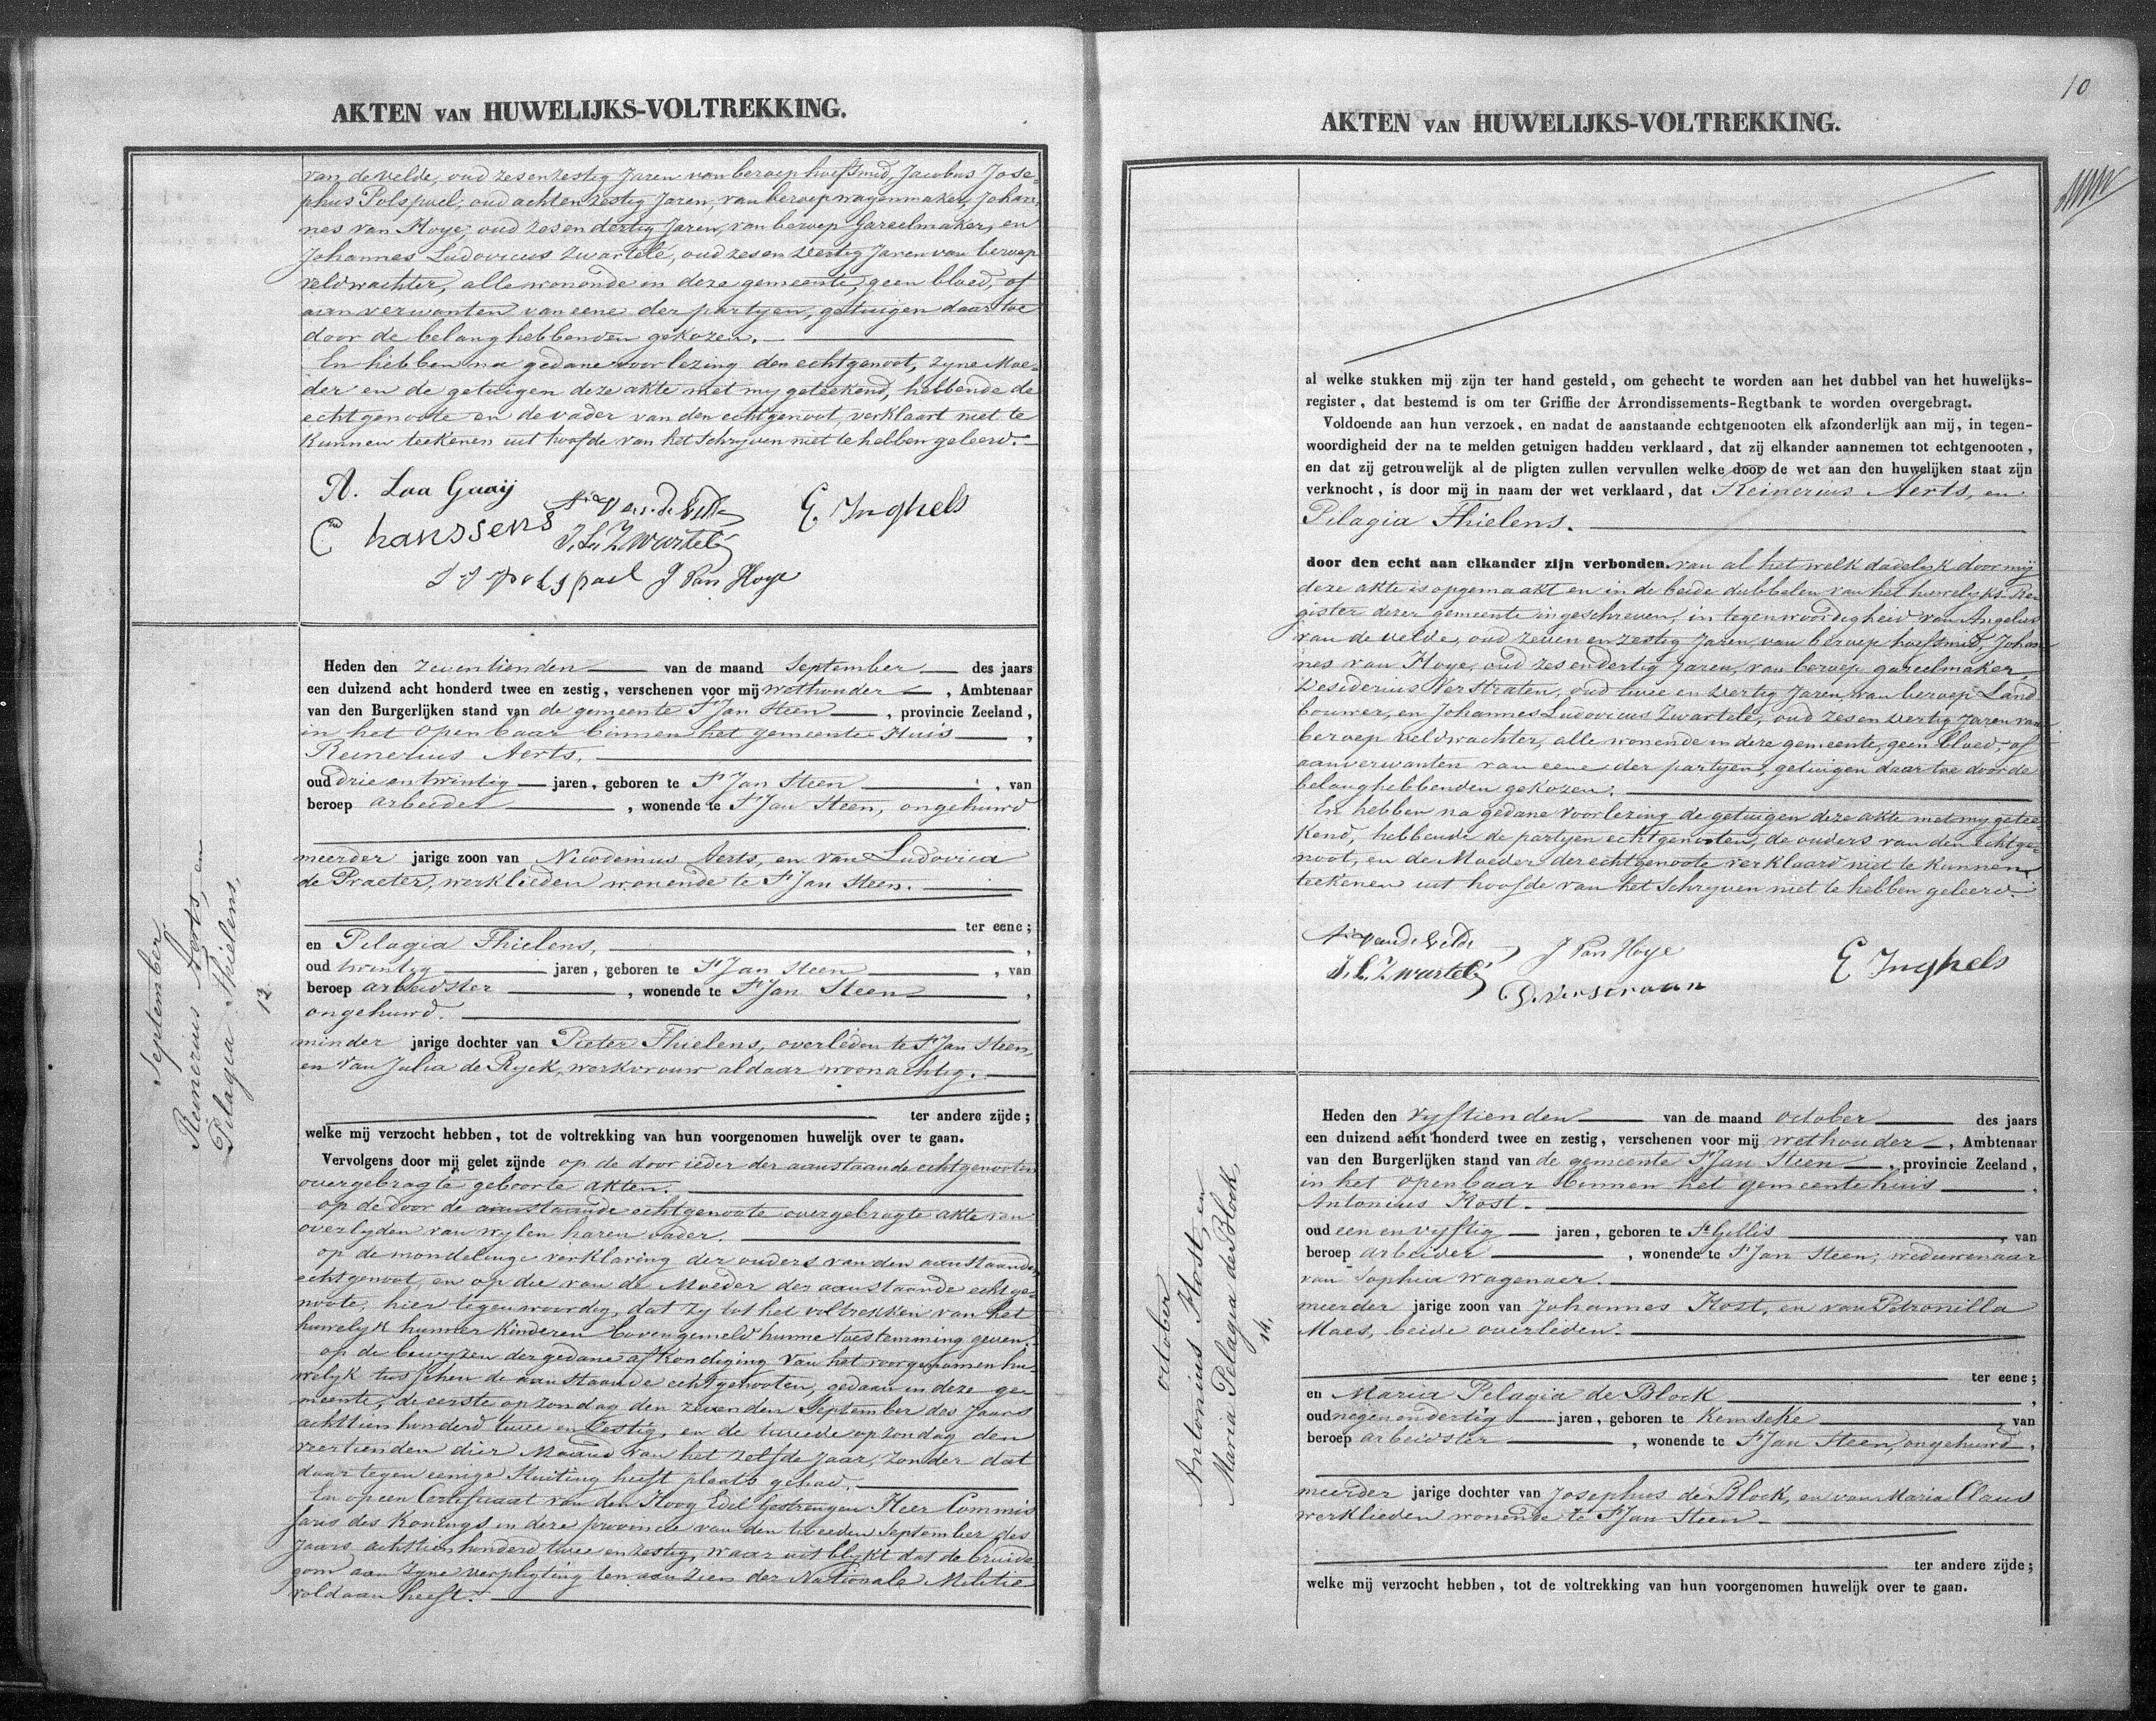 AKTEN VAN HUWELIJKS-VOLTREKKING.
van de velde, oud zes en zestig Jaren van beroep hoefsmid, Jacobus Jose-
phus Polspoel, oud acht en zestig Jaren, van beroep wagenmaker, Johan-
nes van Hoye, oud zes en dertig Jaren, van beroep Gareelmaker, en
Johannes Ludovicus Zwartelé, oud zes en veertig Jaren van beroep
veldwachter, alle wonende in deze gemeente, geen bloed, of
aan verwanten van eene der partyen, getuigen daar toe
door de belanghebbenden gekozen.
En hebben na gedane voorlezing den echtgenoot, zyne Moe-
der en de getuigen deze akte met my geteekend, hebbende de
echtgenoote en de vader van den echtgenoot, verklaart niet te
Kunnen teekenen uit hoofde van het Schryven niet te hebben geleerd.
A. Laa Gaaij
Van de Velde
E. Inghels
C hanssens
J. L. Zwartelé
J J polspoel J Van Hoye
September
Reinerius Aerts, en
Pelagia Thielens,
13.
Heden den zeventienden van de maand September des jaars
een duizend acht honderd twee en zestig, verschenen voor mij wethouder, Ambtenaar
van den Burgerlijken stand van de gemeente St Jan Steen, provincie Zeeland,
in het Openbaar binnen het gemeente Huis,
Reinerius Aerts,
oud drie en twintig jaren, geboren te St Jan Steen, van
beroep arbeider, wonende te St Jan Steen, ongehuwd
meerder jarige zoon van Nicodemus Aerts, en van Ludovica
de Praeter, werklieden wonende te St Jan Steen.
ter eene;
en Pelagia Thielens,
oud twintig jaren, geboren te St Jan Steen, van
beroep arbeidster, wonende te St Jan Steen,
ongehuwd.
minder jarige dochter van Pieter Thielens, overleden te St Jan Steen,
en van Julia de Ryck, werkvrouw aldaar woonachtig.
ter andere zijde;
welke mij verzocht hebben, tot de voltrekking van hun voorgenomen huwelijk over te gaan.
Vervolgens door mij gelet zijnde op de door ieder der aanstaande echtgenooten
overgebragte geboorte akten.
op de door de aanstaande echtgenoote overgebragte akte van
overlyden van wylen haren vader.
op de mondelinge verklaring der ouders van den aanstaanden
echtgenoot, en op die van de Moeder der aanstaande echtge-
noote, hier tegenwoordig, dat zy tot het voltrekken van het
huwelyk hunner Kinderen bovengemeld hunne toestemming geven.
op de bewyzen der gedane afkondiging van het voorgenomen hu-
welyk tusschen de aanstaande echtgenooten, gedaan in deze ge-
meente, de eerste op zondag den zevenden September des Jaars
achttien honderd twee en Zestig, en de tweede op zondag den
veertienden dier Maand van het zelfde Jaar, zonder dat
daar tegen eenige Stuiting heeft plaats gehad.
En op een Certificaat van den Hoog Edel Gestrengen Heer Commis
saris des Konings in deze provincie van den tweeden September des
Jaars achttien honderd twee en zestig, waar uit blykt dat de bruide-
gom aan Zyne verpligting ten aanzien der Nationale Militie
voldaan heeft.
10
AKTEN VAN HUWELIJKS-VOLTREKKING.
al welke stukken mij zijn ter hand gesteld, om gehecht te worden aan het dubbel van het huwelijks-
register, dat bestemd is om ter Griffie der Arrondissements-Regtbank te worden overgebragt.
Voldoende aan hun verzoek, en nadat de aanstaande echtgenooten elk afzonderlijk aan mij, in tegen-
woordigheid der na te melden getuigen hadden verklaard, dat zij elkander aannemen tot echtgenooten,
en dat zij getrouwelijk al de pligten zullen vervullen welke door de wet aan den huwelijken staat zijn
verknocht, is door mij in naam der wet verklaard, dat Reinerius Aerts, en
Pelagia Thielens.
door den echt aan elkander zijn verbonden. van al het welk dadelyk door mij
deze akte is opgemaakt en in de beide dubbelen van het huwelyks-Re-
gister dezer gemeente ingeschreven, in tegenwoordigheid van Angelus
van de velde, oud zeven en zestig Jaren, van beroep hoefsmid, Johan-
nes van Hoye, oud zes en dertig Jaren, van beroep gareelmaker,
Desiderius Verstraten, oud twee en veertig Jaren, van beroep Land
bouwer, en Johannes Ludovicus Zwartelé, oud zes en veertig Jaren van
beroep veldwachter, alle wonende in deze gemeente, geen bloed, of
aanverwanten van eene der partyen, getuigen daar toe door de
belanghebbenden gekozen.
En hebben na gedane voorlezing de getuigen deze akte met my getee-
Kend, hebbende de partyen echtgenooten, de ouders van den echtge-
noot, en de Moeder der echtgenoote verklaard niet te kunnen
teekenen uit hoofde van het Schryven niet te hebben geleerd.
Van de Velde
J Van Hoye
E Inghels
J. L. Zwartelé
D. Verstraeten
october
Antonius Kost, en
Maria Pelagia de Block,
14.
Heden den vyftienden van de maand october des jaars
een duizend acht honderd twee en zestig, verschenen voor mij wethouder, Ambtenaar
van den Burgerlijken stand van de gemeente St Jan Steen, provincie Zeeland,
in het openbaar binnen het gemeentehuis,
Antonius Kost.
oud een en vyftig jaren, geboren te St Gillis, van
beroep arbeider, wonende te St Jan Steen, weduwenaar
van Sophia Wagenaer.
meerder jarige zoon van Johannes Kost, en van Petronilla
Maes, beide overleden.
ter eene;
en Maria Pelagia de Block
oud negen en dertig jaren, geboren te Kemseke, van
beroep arbeidster, wonende te St Jan Steen, ongehuwd,
meerder jarige dochter van Josephus de Block, en van Maria Claus
werklieden wonende te St Jan Steen.
ter andere zijde;
welke mij verzocht hebben, tot de voltrekking van hun voorgenomen huwelijk over te gaan.